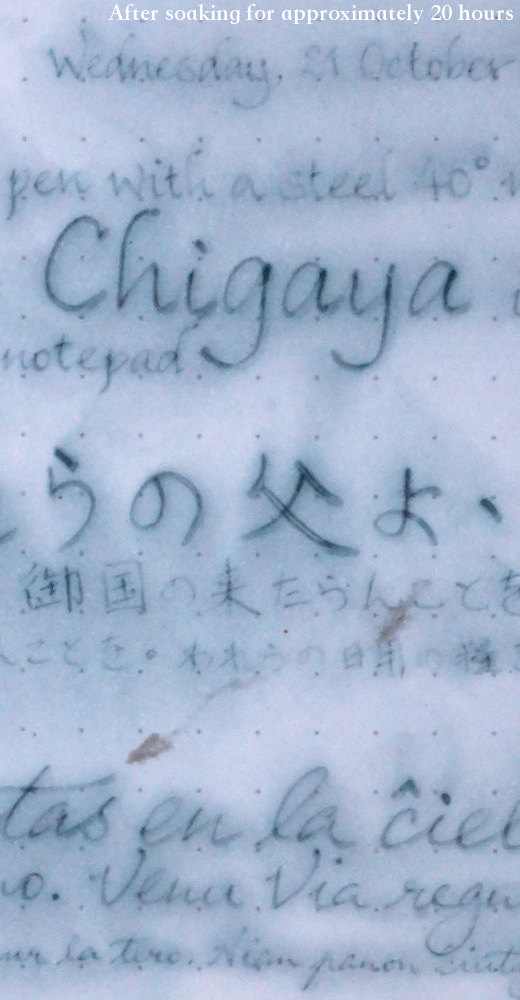 After soaking for approximately 20 hours
Wednesday, 21 October
pen with a steel 40°
Chigaya
notepad
らの父よ、
御国の来たらんことを
んことを。われらの日用の糧を
tas en la ĉiel
o. Venu Via regn
sur la tero. Nian panon